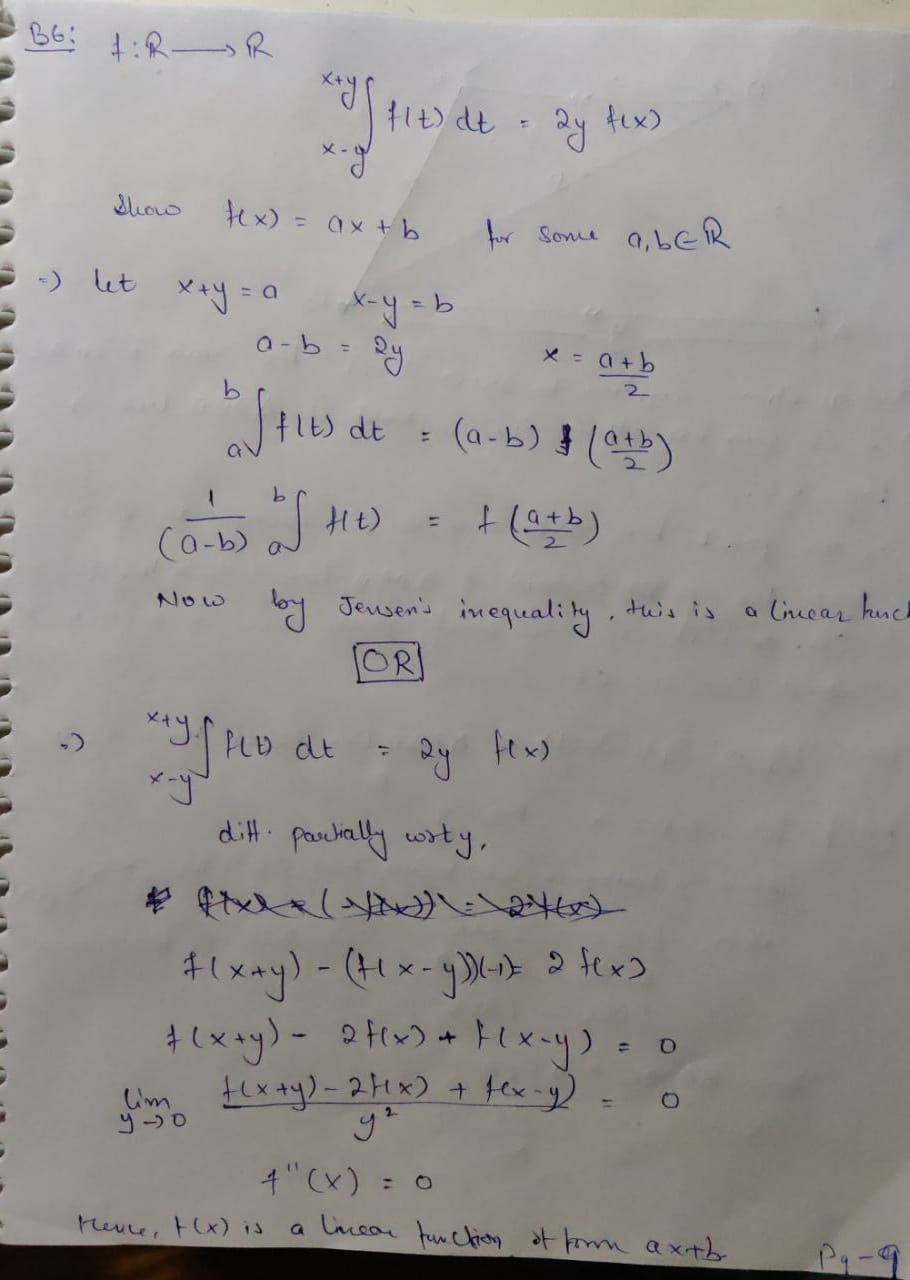 B6: f: R → R
∫_{x-y}^{x+y} f(t) dt = 2y f(x)
Show f(x) = ax + b for some a, b ∈ R
=) let x+y = a x-y = b
a-b = 2y x = (a+b)/2
∫_a^b f(t) dt = (a-b) f((a+b)/2)
1/(a-b) ∫_a^b f(t) = f((a+b)/2)
Now by Jensen's inequality, this is a linear
OR
=) ∫_{x-y}^{x+y} f(t) dt = 2y f(x)
diff. partially wrt y,
f(x+y) - (f(x-y))(-1) = 2 f(x)
f(x+y) - 2f(x) + f(x-y) = 0
lim_{y→0} (f(x+y) - 2f(x) + f(x-y))/y² = 0
f''(x) = 0
Hence, f(x) is a linear function of form ax+b
Pg-9